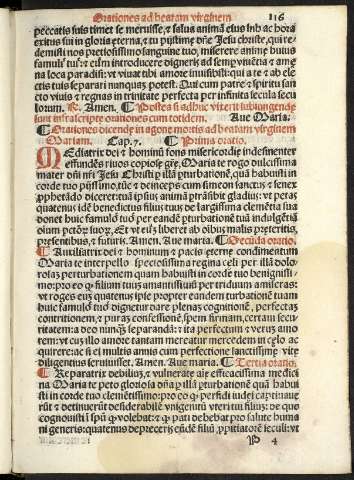 Orationes ad beatam virginem 116
peccatis suis timet se meruisse, ⁊ salus animā eius inh ac hora
exitus sui in gloria eterna, ⁊ tu pijssime dn̄e Jesu christe, qui re
demisti nos preciosissimo sanguine tuo, miserere anime huius
famuli tui ⁊ eam introducere digneris ad semp viuētia ⁊ amē
na loca paradisi: vt viuat tibi amore inuisibili: qui a te ⁊ ab ele
ctis tuis separari nunquaȝ potest. Qui cum patre ⁊ spiritu san
cto viuis ⁊ regnas in trinitate perfecta per infinita secula secu
lorum. R. Amen. ¶ Postea si adhuc vixerit subiungende
sunt infrascripte orationes cum totidem. Aue Maria:
¶ Orationes dicende in agone mortis ad beatam virginem
Mariam. Cap. 7. ¶ Prima oratio.
MEdiatrix dei ⁊ hominū fons misericordie indesinenter
effundēs riuos copiose gr̄e, Maria te rogo dulcissima
mater dn̄i nr̄i Jesu Christi p illā pturbationē, quā habuisti in
corde tuo pijssimo, tūc ⁊ deinceps cum simeon sanctus ⁊ senex
pphetādo diceret: tuā ipsius animā ptrāsibit gladius: vt petas
quatenus idē benedictus filius tuus de largissima clemētia sua
donet huic famulo tuo per eandē pturbationē tuā indulgētiā
oīum pctōȝ suoȝ, Et vt eūȝ liberet ab oībus malis preteritis,
presentibus, ⁊ futuris. Amen. Aue maria. ¶ Secūda oratio.
¶ Auxiliatrix dei ⁊ hominum ⁊ pacis eterne condimentum
Maria te interpello speciosissima regina celi per illā dolo
rosaȝ perturbationem quam habuisti in corde tuo benignissi-
mo: pro eo ꝙ filium tuum amantissimū per triduum amiseras:
vt roges eum quatenus ipse propter eandem turbationē tuam
huic famulo tuo dignetur dare plenaȝ cognitionē, perfectaȝ
contritionem, ⁊ puraȝ confessionē, spem firmam, certam secu
ritatem: a deo nunqȝ separandā: ⁊ ita perfectum ⁊ verum amo
rem: vt cum illo amore tantam mereatur mercedem in celo ac
quirere: ac si ei multis annis cum perfectione sanctissime vite
diligentius seruiuisset. Amen. Aue maria. ¶ Tertia oratio.
¶ Reparatrix debilis, ⁊ vulnerate aīe efficacissima medici
na Maria te peto gloriosa dn̄a p illā pturbationē quā habui
sti in corde tuo clemētissimo: pro eo ꝙ perfidi iudei captiuaue
rūt ⁊ detinuerūt desiderabilē vnigenitū vterī tui filium: de quo
cognouisti ipsū ꝙ volebat: ⁊ ꝙ pati debebat pro salute huma
ni generis: quatenus depreceris eūdē filiū, ppitiatorē seculi: vt
P 4